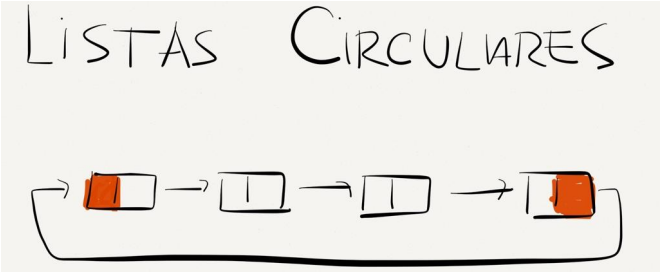 LISTAS CIRCULARES